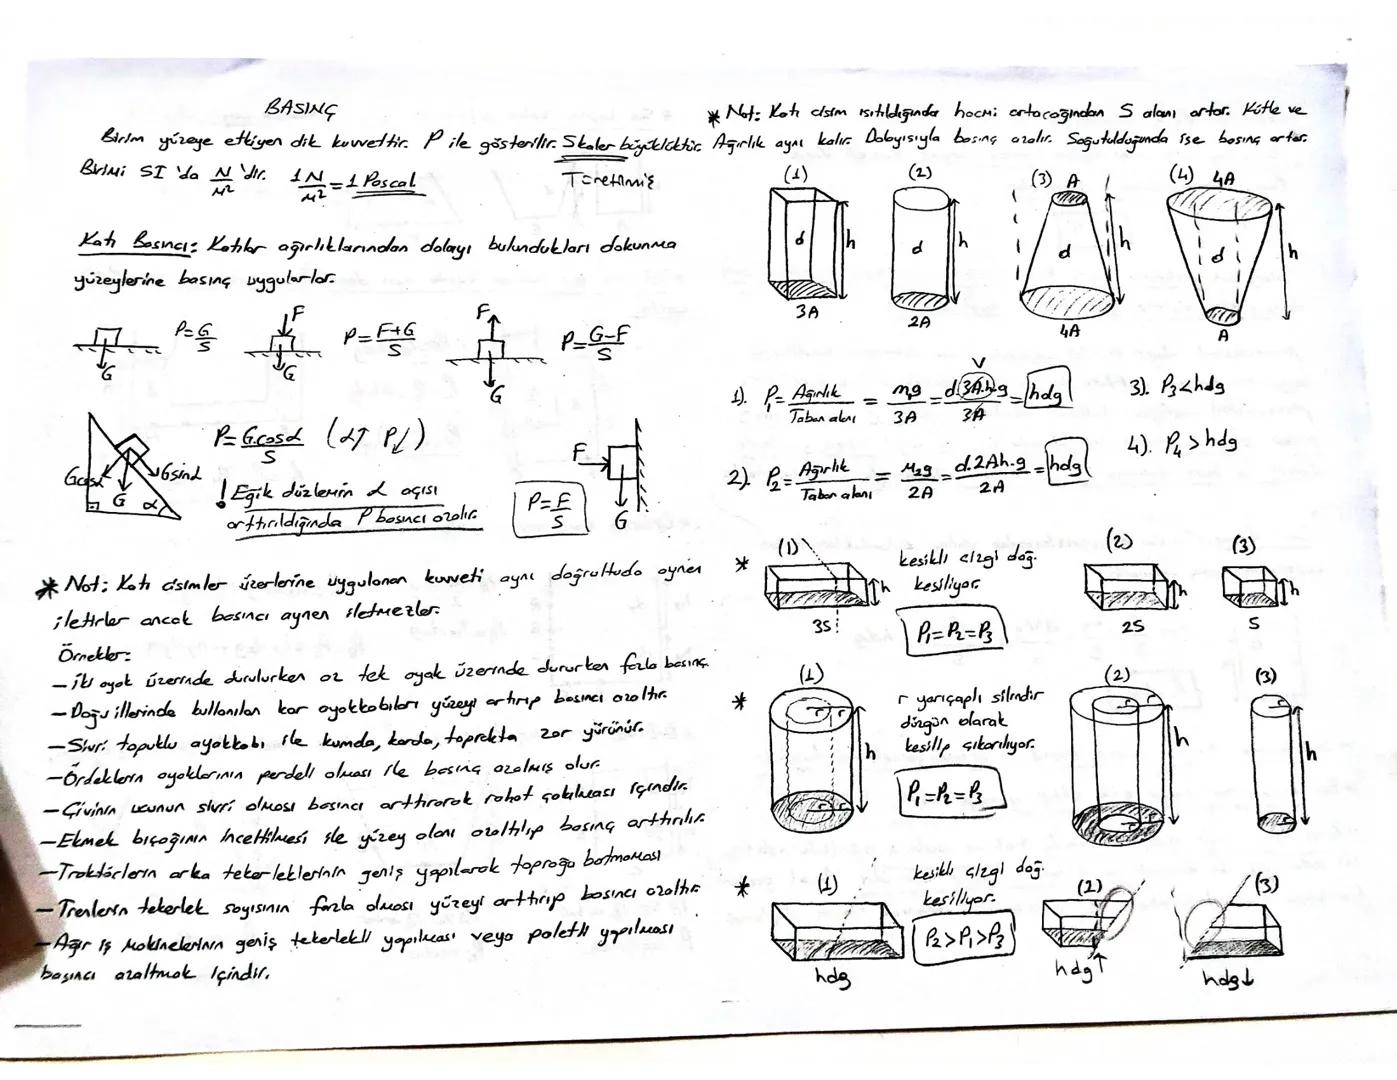 BASINÇ
Birim yüzeye etkiyen dik kuvvettir. P ile gösterilir. Skaler büyüklüktür.
Türetilmiş
Birimi SI 'da N/M² 'dir. 1N/M² = 1 Pascal
Katı Basıncı: Katılar ağırlıklarından dolayı bulundukları dokunma
yüzeylerine basınç uygularlar.
G P=G/S F G P=F+G/S F G P=G-F/S
Gcosα G Gsinα α P=G.cosα/S (α↑ P↓)
! Eğik düzlemin α açısı
arttırıldığında P basıncı azalır.
F G P=F/S
* Not: Katı cisimler üzerlerine uygulanan kuvveti aynı doğrultuda aynen
iletirler ancak basıncı aynen iletmezler.
Örnekler:
- İki ayak üzerinde durulurken az tek ayak üzerinde dururken fazla basınç.
- Doğu illerinde kullanılan kar ayakkabıları yüzeyi artırıp basıncı azaltır.
- Sivri topuklu ayakkabı ile kumda, karda, toprakta zor yürünür.
- Ördeklerin ayaklarının perdeli olması ile basınç azalmış olur.
- Çivinin ucunun sivri olması basıncı arttırarak rahat çakılması içindir.
- Ekmek bıçağının inceltilmesi ile yüzey alanı azaltılıp basınç arttırılır.
- Traktörlerin arka tekerleklerinin geniş yapılarak toprağa batmaması
- Trenlerin tekerlek sayısının fazla olması yüzeyi arttırıp basıncı azaltır
- Ağır iş makinelerinin geniş tekerlekli yapılması veya paletli yapılması
basıncı azaltmak içindir.
* Not: Katı cisim ısıtıldığında hacmi artacağından S alanı artar. Kütle ve
Ağırlık aynı kalır. Dolayısıyla basınç azalır. Soğutulduğunda ise basınç artar.
(1) (2) (3) A (4) 4A
d h d h d h d h
3A 2A 4A A
V
1). P₁= Ağırlık/Taban alanı = m₁g/3A = d.3A.h.g/3A = hdg
3). P₃<hdg
2). P₂= Ağırlık/Taban alanı = M₂g/2A = d.2Ah.g/2A = hdg
4). P₄>hdg
* (1) h 3S
kesikli çizgi doğ.
kesiliyor.
P₁=P₂=P₃
(2) h 2S (3) h S
* (1) r r h r r
r yarıçaplı silindir
düzgün olarak
kesilip çıkarılıyor.
P₁=P₂=P₃
(2) r r h r r (3) r h r
* (1) hdg
kesikli çizgi doğ.
kesiliyor.
P₂>P₁>P₃
(2) hdg↑ (3) hdg↓